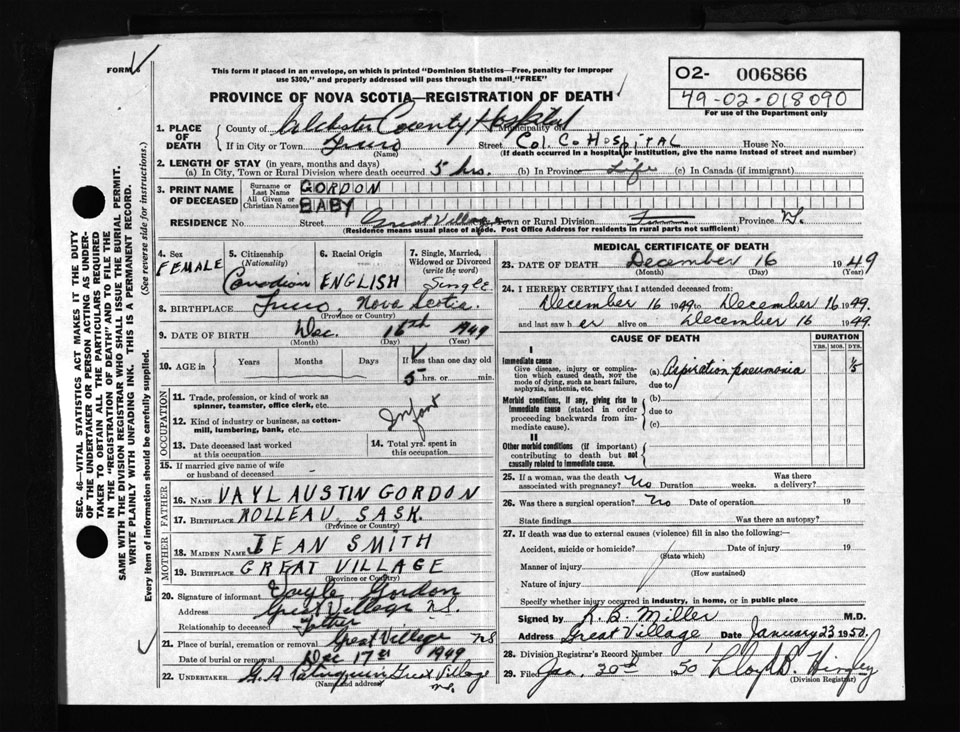 FORM
This form if placed in an envelope, on which is printed "Dominion Statistics—Free, penalty for improper
use $300," and properly addressed will pass through the mail "FREE"
PROVINCE OF NOVA SCOTIA—REGISTRATION OF DEATH
O2- 006866
49-02-018090
For use of the Department only
SEC. 46—VITAL STATISTICS ACT MAKES IT THE DUTY
OF THE UNDERTAKER OR PERSON ACTING AS UNDER-
TAKER TO OBTAIN ALL THE PARTICULARS REQUIRED
IN THE "REGISTRATION OF DEATH" AND TO FILE THE
SAME WITH THE DIVISION REGISTRAR WHO SHALL ISSUE THE BURIAL PERMIT.
WRITE PLAINLY WITH UNFADING INK. THIS IS A PERMANENT RECORD.
Every item of information should be carefully supplied. (See reverse side for instructions.)
1. PLACE OF DEATH
County of Colchester County Hospital Municipality of
If in City or Town Truro Street Col. Co Hospital House No.
(Name) (If death occurred in a hospital or institution, give the name instead of street and number)
2. LENGTH OF STAY (in years, months and days)
(a) In City, Town or Rural Division where death occurred 5 hrs. (b) In Province Life (c) In Canada (if immigrant)
3. PRINT NAME OF DECEASED
Surname or Last Name GORDON
All Given or Christian Names BABY
RESIDENCE No. Street Great Village City, Town or Rural Division Province N.S.
(Residence means usual place of abode. Post Office Address for residents in rural parts not sufficient)
4. Sex FEMALE
5. Citizenship (Nationality) Canadian
6. Racial Origin ENGLISH
7. Single, Married, Widowed or Divorced (write the word) Single
8. BIRTHPLACE Truro, Nova Scotia.
(Province or Country)
9. DATE OF BIRTH Dec. 16th 1949
(Month) (Day) (Year)
10. AGE in Years Months Days If less than one day old
5 hrs. or min.
OCCUPATION
11. Trade, profession, or kind of work as
spinner, teamster, office clerk, etc.
12. Kind of industry or business, as cotton-
mill, lumbering, bank, etc. Infant
13. Date deceased last worked
at this occupation
14. Total yrs. spent in
this occupation
15. If married give name of wife
or husband of deceased
FATHER
16. NAME VAYL AUSTIN GORDON
17. BIRTHPLACE ROLLEAU, SASK.
(Province or Country)
MOTHER
18. MAIDEN NAME JEAN SMITH
19. BIRTHPLACE GREAT VILLAGE
(Province or Country)
20. Signature of informant Gordon
Address Great Village N.S.
Relationship to deceased Father
21. Place of burial, cremation or removal Great Village NS
Date of burial or removal Dec 17th 1949
22. UNDERTAKER Great Village
N.S.
(Name and address)
MEDICAL CERTIFICATE OF DEATH
23. DATE OF DEATH December 16 1949
(Month) (Day) (Year)
24. I HEREBY CERTIFY that I attended deceased from:
December 16 1949 to December 16 1949.
and last saw her alive on December 16 1949.
CAUSE OF DEATH DURATION
YRS. MOS. DYS.
I
Immediate cause
Give disease, injury or complica-
tion which caused death, NOT the
mode of dying, such as heart failure,
asphyxia, asthenia, etc.
(a) Aspiration pneumonia 1/5
due to
Morbid conditions, if any, giving rise to
immediate cause (stated in order
proceeding backwards from im-
mediate cause).
(b)
due to
(c)
II
Other morbid conditions (if important)
contributing to death but not
causally related to immediate cause.
25. If a woman, was the death
associated with pregnancy? No Duration weeks. Was there
a delivery?
26. Was there a surgical operation? No Date of operation 19
State findings Was there an autopsy?
27. If death was due to external causes (violence) fill in also the following:—
Accident, suicide or homicide? Date of injury 19
(State which)
Manner of injury
(How sustained)
Nature of injury
Specify whether injury occurred in industry, in home, or in public place
Signed by R. B. Miller M.D.
Address Great Village Date January 23 1950.
28. Division Registrar's Record Number 1
29. Filed Jan. 30th 1950 Lloyd B.
(Division Registrar)